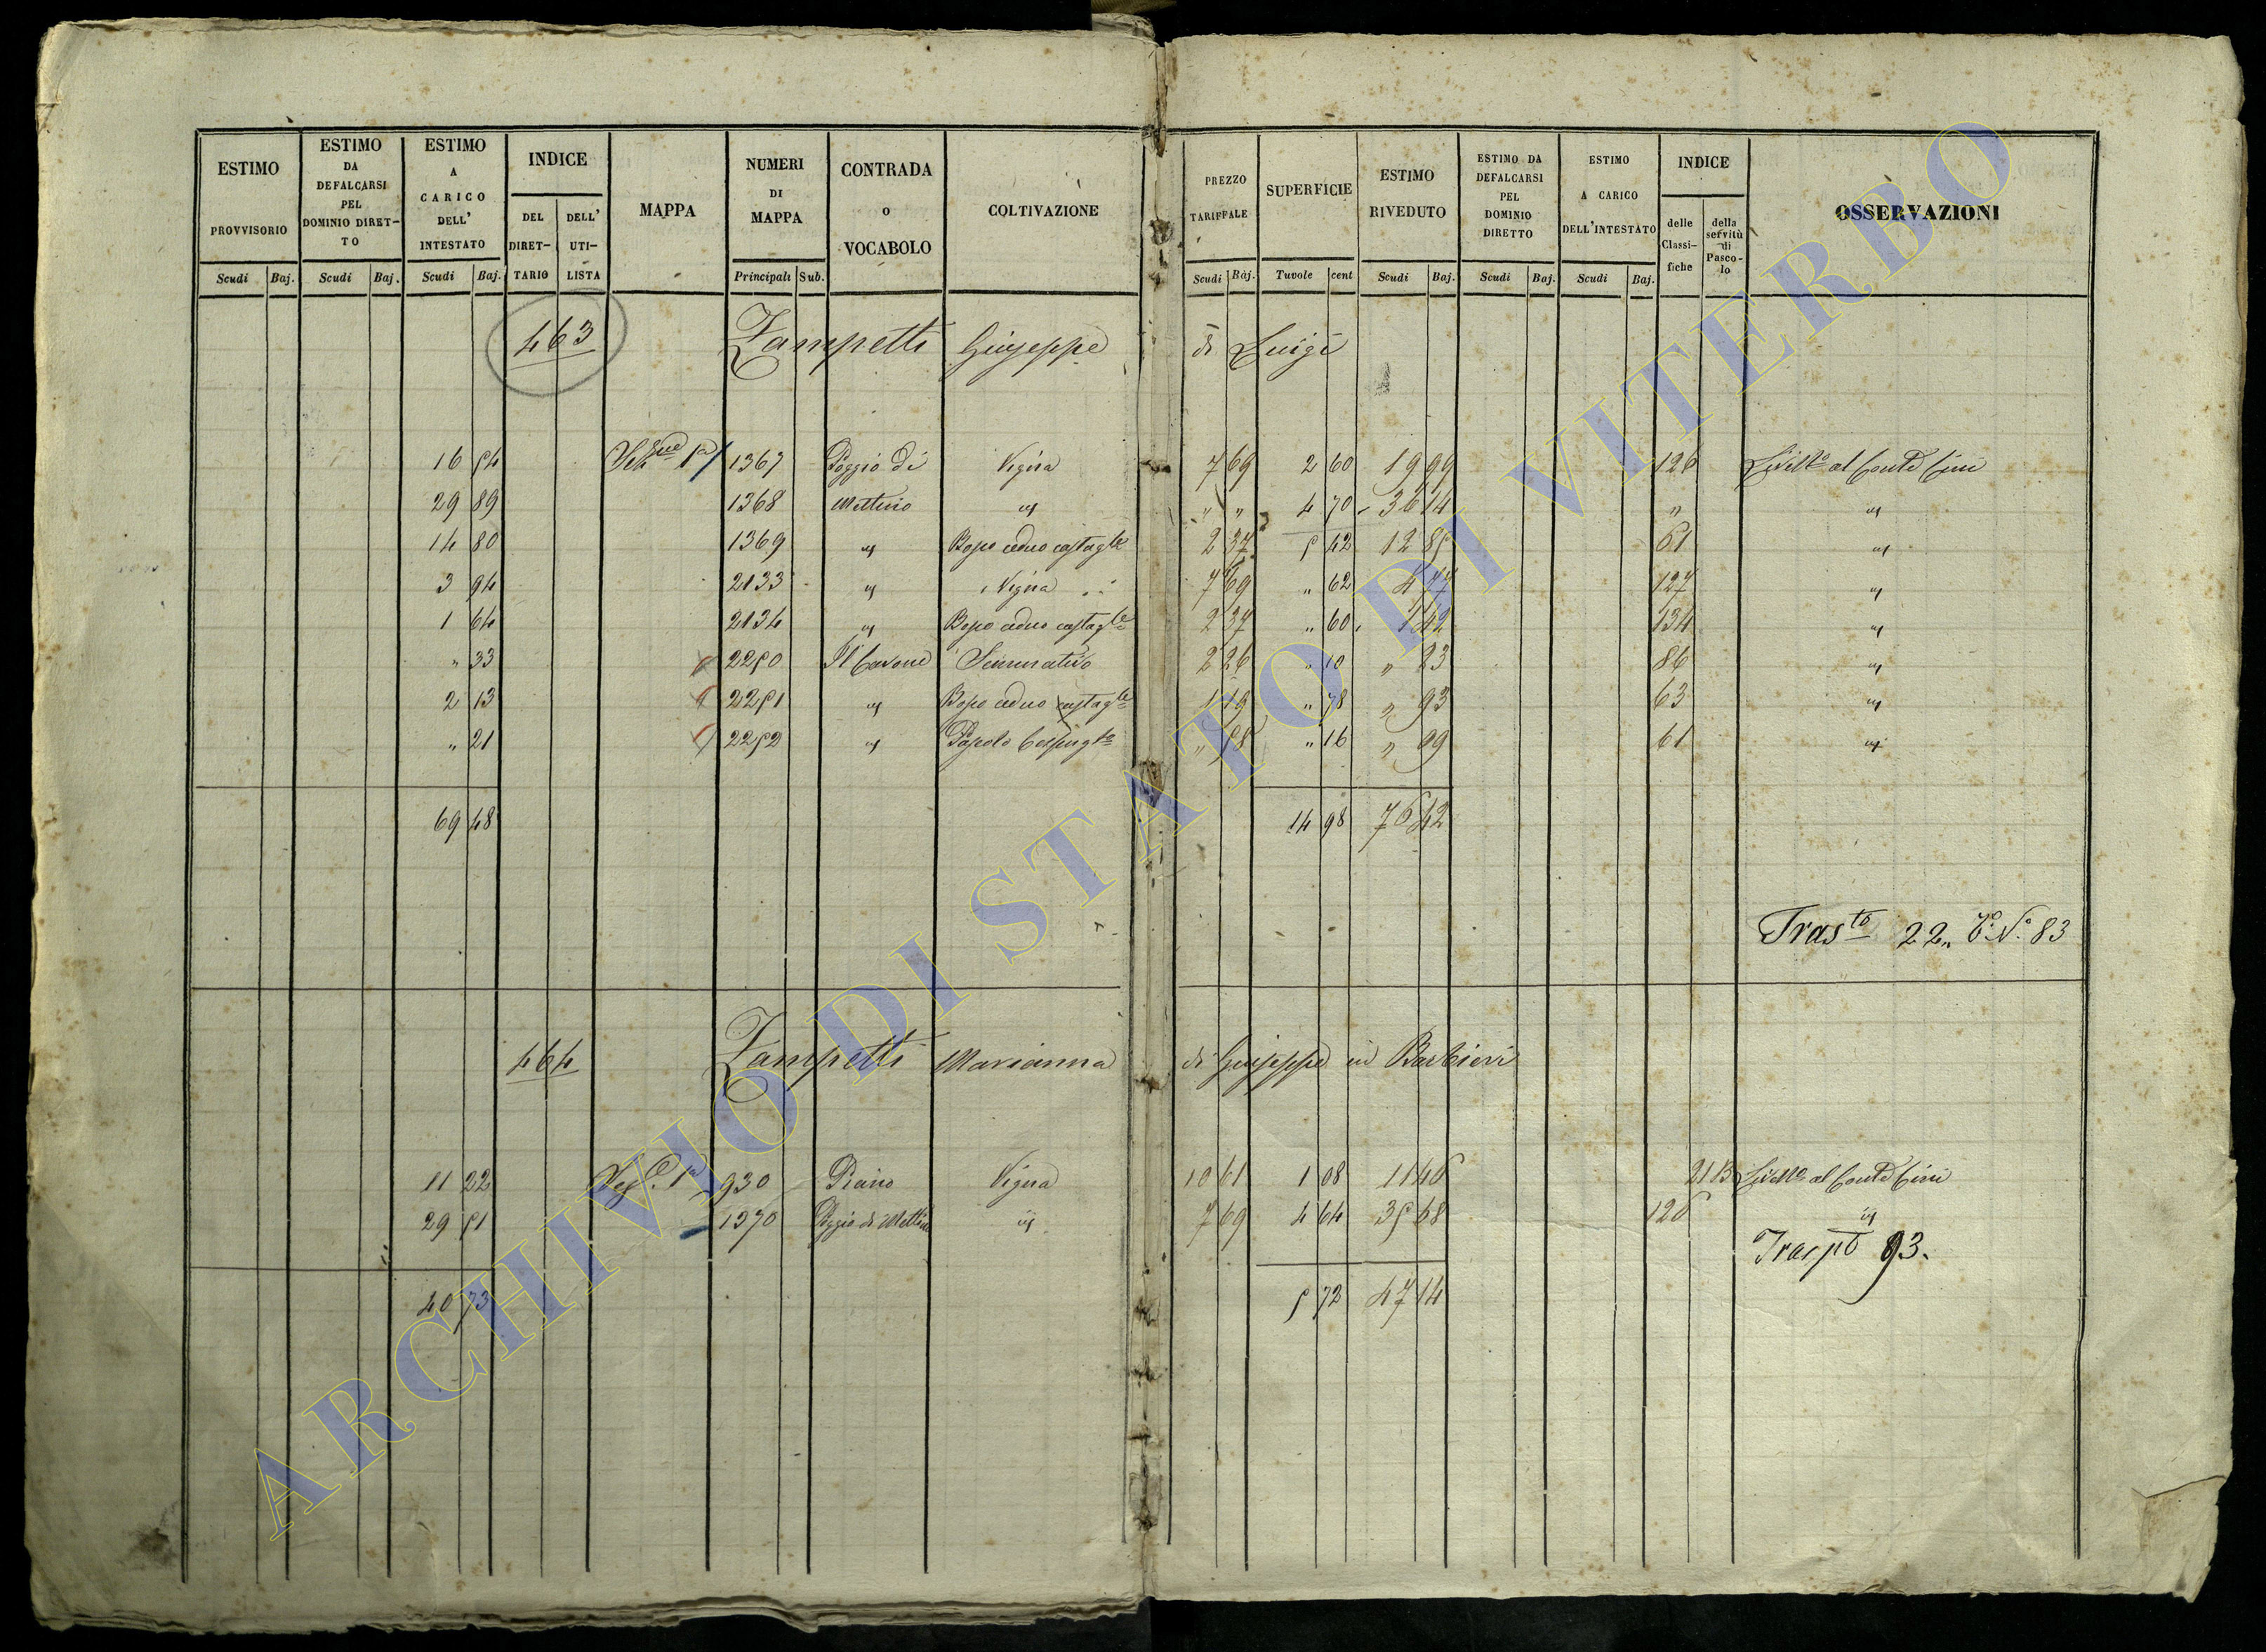 ESTIMO PROVVISORIO Scudi Baj.
ESTIMO DA DEFALCARSI PEL DOMINIO DIRET-TO Scudi Baj.
ESTIMO A CARICO DELL' INTESTATO Scudi Baj.
INDICE DEL DIRET-TARIO DELL' UTI-LISTA
MAPPA
NUMERI DI MAPPA Principali Sub.
CONTRADA o VOCABOLO
COLTIVAZIONE
PREZZO TARIFFALE Scudi Baj.
SUPERFICIE Tavole cent
ESTIMO RIVEDUTO Scudi Baj.
ESTIMO DA DEFALCARSI PEL DOMINIO DIRETTO Scudi Baj.
ESTIMO A CARICO DELL'INTESTATO Scudi Baj.
INDICE delle Classi-fiche della servitù di Pasco-lo
OSSERVAZIONI
463 Zampetti Giuseppe di Luigi
16 54 1367 Poggio di Vigna 7 69 2 60 19 99 126 Livello al Conte Cini
29 89 1368 Mettino " " " 4 70 36 14 " "
14 80 1369 " Bosco ceduo castagle 2 37 5 42 12 85 61 "
3 94 2133 " Vigna 7 69 " 62 4 77 127 "
1 64 2134 " Bosco ceduo castagle 2 37 " 60 1 42 134 "
" 33 2250 Il Cavone Seminativo 2 26 " 10 " 23 86 "
2 13 2251 " Bosco ceduo castagle 1 19 " 78 " 93 63 "
" 21 2252 " Pascolo " 58 " 16 " 09 61 "
69 48 14 98 76 42
Trasto 22 N.° 83
464 Zampetti Marianna di Giuseppe in Barbieri
11 22 Sez. 1a 930 Piano Vigna 10 61 1 08 11 46 213 Livello al Conte Cini
29 51 1370 Poggio di Mettino " 7 69 4 64 35 68 126 "
Trasptо 93.
40 73 5 72 47 14
ARCHIVIO DI STATO DI VITERBO